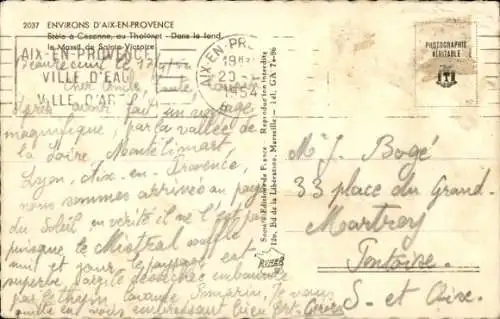 2037 ENVIRONS D'AIX-EN-PROVENCE
Stèle à Cézanne, au Tholonet - Dans le fond,
le Massif de Sainte-Victoire
AIX-EN-PROVENCE
VILLE D'EAU
VILLE D'ART
AIX-EN-PRO
19
20-
1954
PHOTOGRAPHIE
VÉRITABLE
Cher Oncle, Tante,
Après avoir fait un voyage
magnifique, par la vallée de
la Loire, Montélimart
Lyon, Aix-en-Provence,
nous sommes arrivés au pays
du Soleil, en vérité il ne l'est pas
puisque le Mistral souffle
nuit et jour, le paysage est
superbe, embaumée
par le thym, lavande, romarin, Je vous
quitte en vous embrassant bien fort
Société Editions de France
Reproduction interdite
12e, Bd de la Libération, Marseille - Tél. GA 74-96
M. J. Boge
33 place du Grand-
Martroy
Pontoise
S. et Oise.